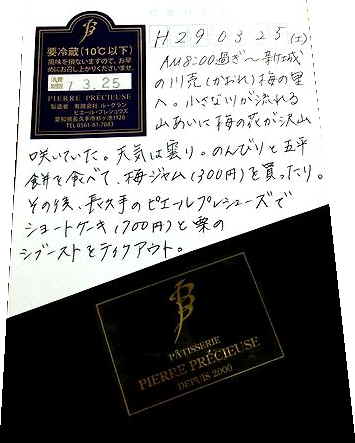 要冷蔵(10℃以下)
風味を損ないますので、お早
めにお召し上がりくださいませ。
消費
期限
1 3. 25
PIERRE PRÉCIEUSE
製造者 有限会社 ル・クラン
ピエール・プレシウズ
TEL 0561-61-7083
H29 03 25 (土)
AM8:00過ぎ〜新城
の川売(かおれ)梅の里
へ。小さな川が流れる
山あいに梅の花が沢山
咲いていた。天気は曇り。のんびりと五平
餅を食べて、梅ジャム(300円)を買ったり。
その後、長久手のピエールプレシューズで
ショートケーキ(700円)と栗の
シブーストをテイクアウト。
PÂTISSERIE
PIERRE PRÉCIEUSE
DEPUIS 2000